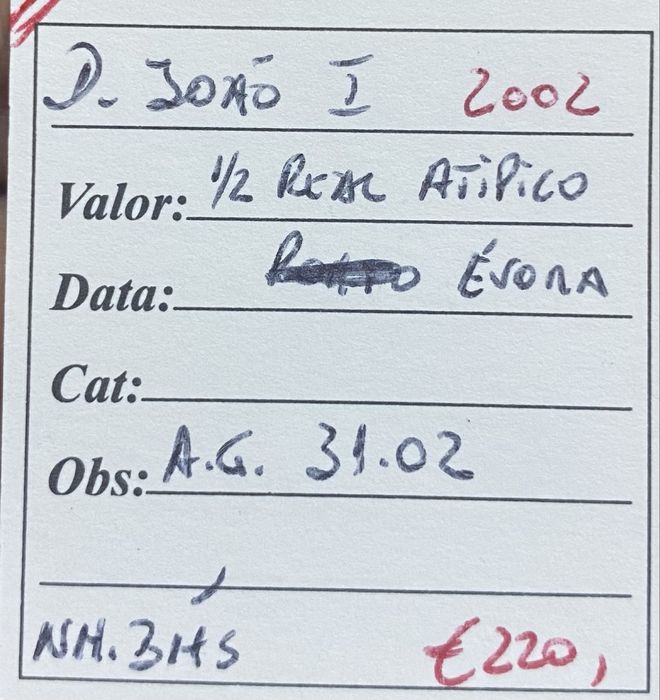 D. JOÃO I 2002
Valor: 1/2 REAL ATÍPICO
Data: ÉVORA
Cat:
Obs: A.G. 31.02
€220,